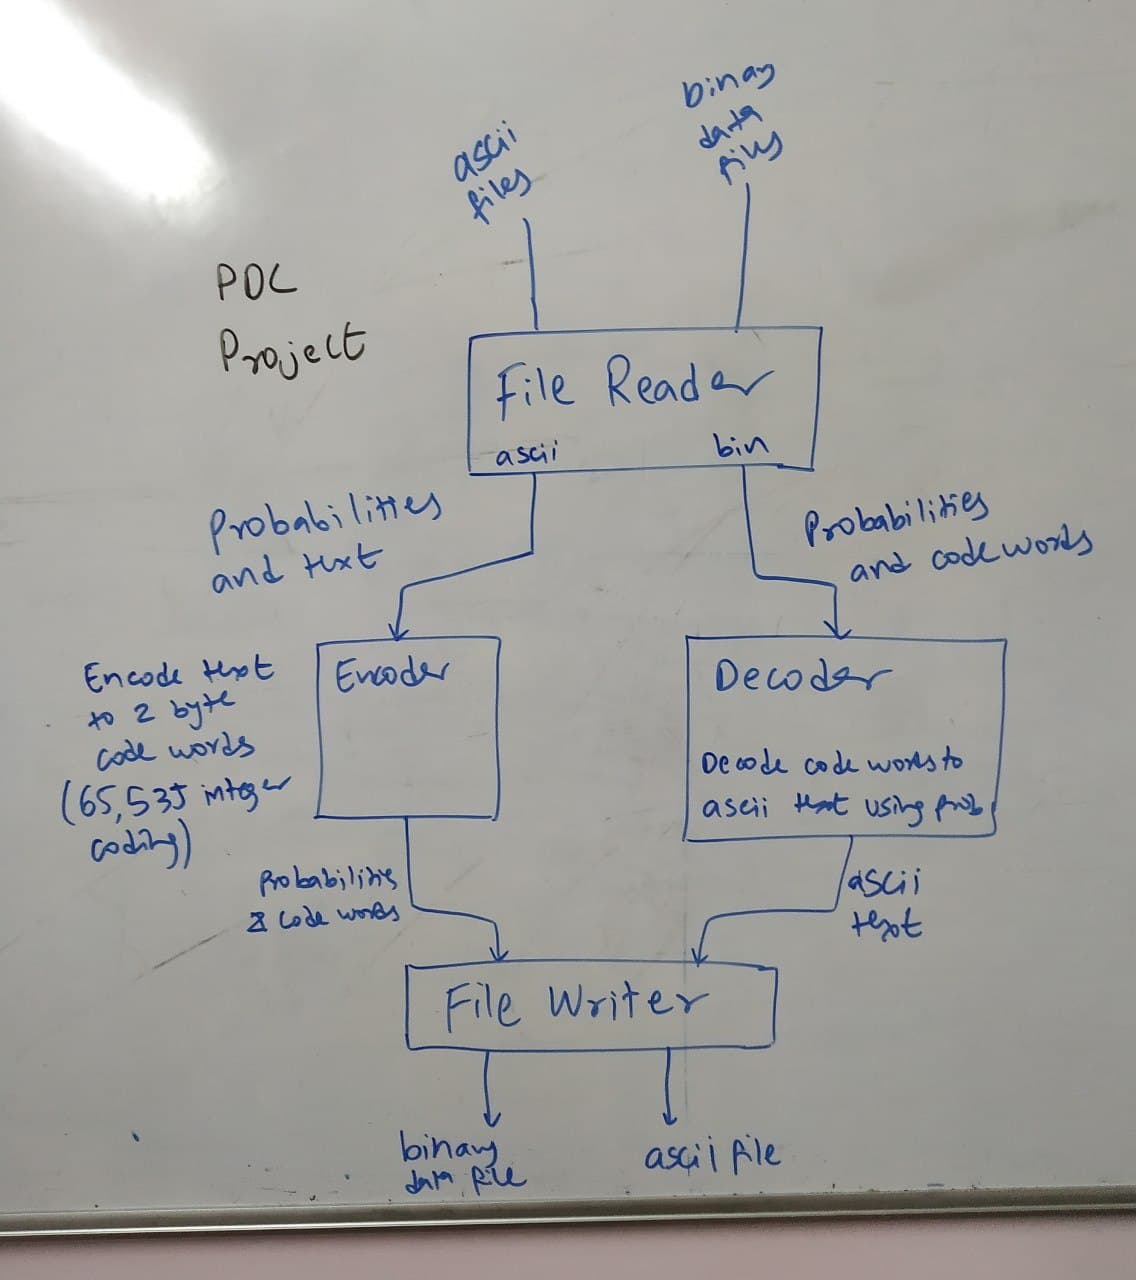 ascii
files
binary
data
files
POC
Project
File Reader
ascii
bin
Probabilities
and text
Probabilities
and code words
Encode text
to 2 byte
code words
(65,535 integer
coding)
Encoder
Decoder
Decode code words to
ascii text using prob
Probabilities
& code words
ascii
text
File Writer
binary
data file
ascii file